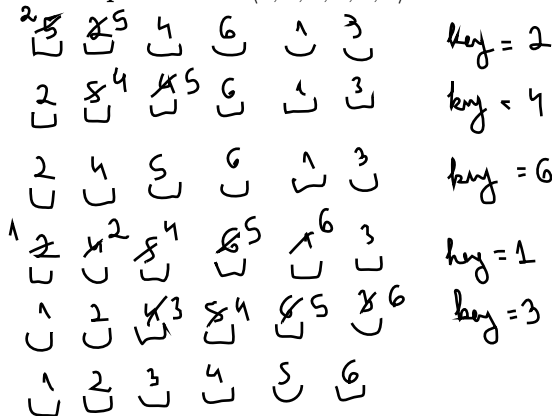 2 5 2 5 4 6 1 3 key = 2
2 5 4 4 5 6 1 3 key = 4
2 4 5 6 1 3 key = 6
1 2 4 2 5 4 6 5 1 6 3 key = 1
1 2 4 3 5 4 6 5 3 6 key = 3
1 2 3 4 5 6